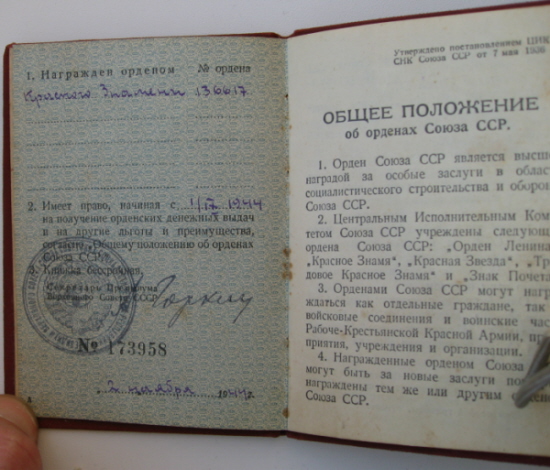 1. Награжден орденом № ордена
Красного Знамени 136617
2. Имеет право, начиная с 1/IX 1944
на получение орденских денежных выдач
и на другие льготы и преимущества,
согласно Общему положению об орденах
Союза ССР.
3. Книжка бессрочная.
Секретарь Президиума
Верховного Совета СССР Горкин
№ 173958
2 1944 г.
Утверждено постановлением ЦИК
СНК Союза ССР от 7 мая 1936
ОБЩЕЕ ПОЛОЖЕНИЕ
об орденах Союза ССР.
1. Орден Союза ССР является высш
наградой за особые заслуги в област
социалистического строительства и оборон
Союза ССР.
2. Центральным Исполнительным Ком
тетом Союза ССР учреждены следующ
ордена Союза ССР: „Орден Ленина
„Красное Знамя", „Красная Звезда", „Тру
довое Красное Знамя" и „Знак Почета
3. Орденами Союза ССР могут награ
ждаться как отдельные граждане, так
войсковые соединения и воинские час
Рабоче-Крестьянской Красной Армии, пр
приятия, учреждения и организации.
4. Награжденные орденом Союза
могут быть за новые заслуги по
награждены тем же или другим орденом
Союза ССР.